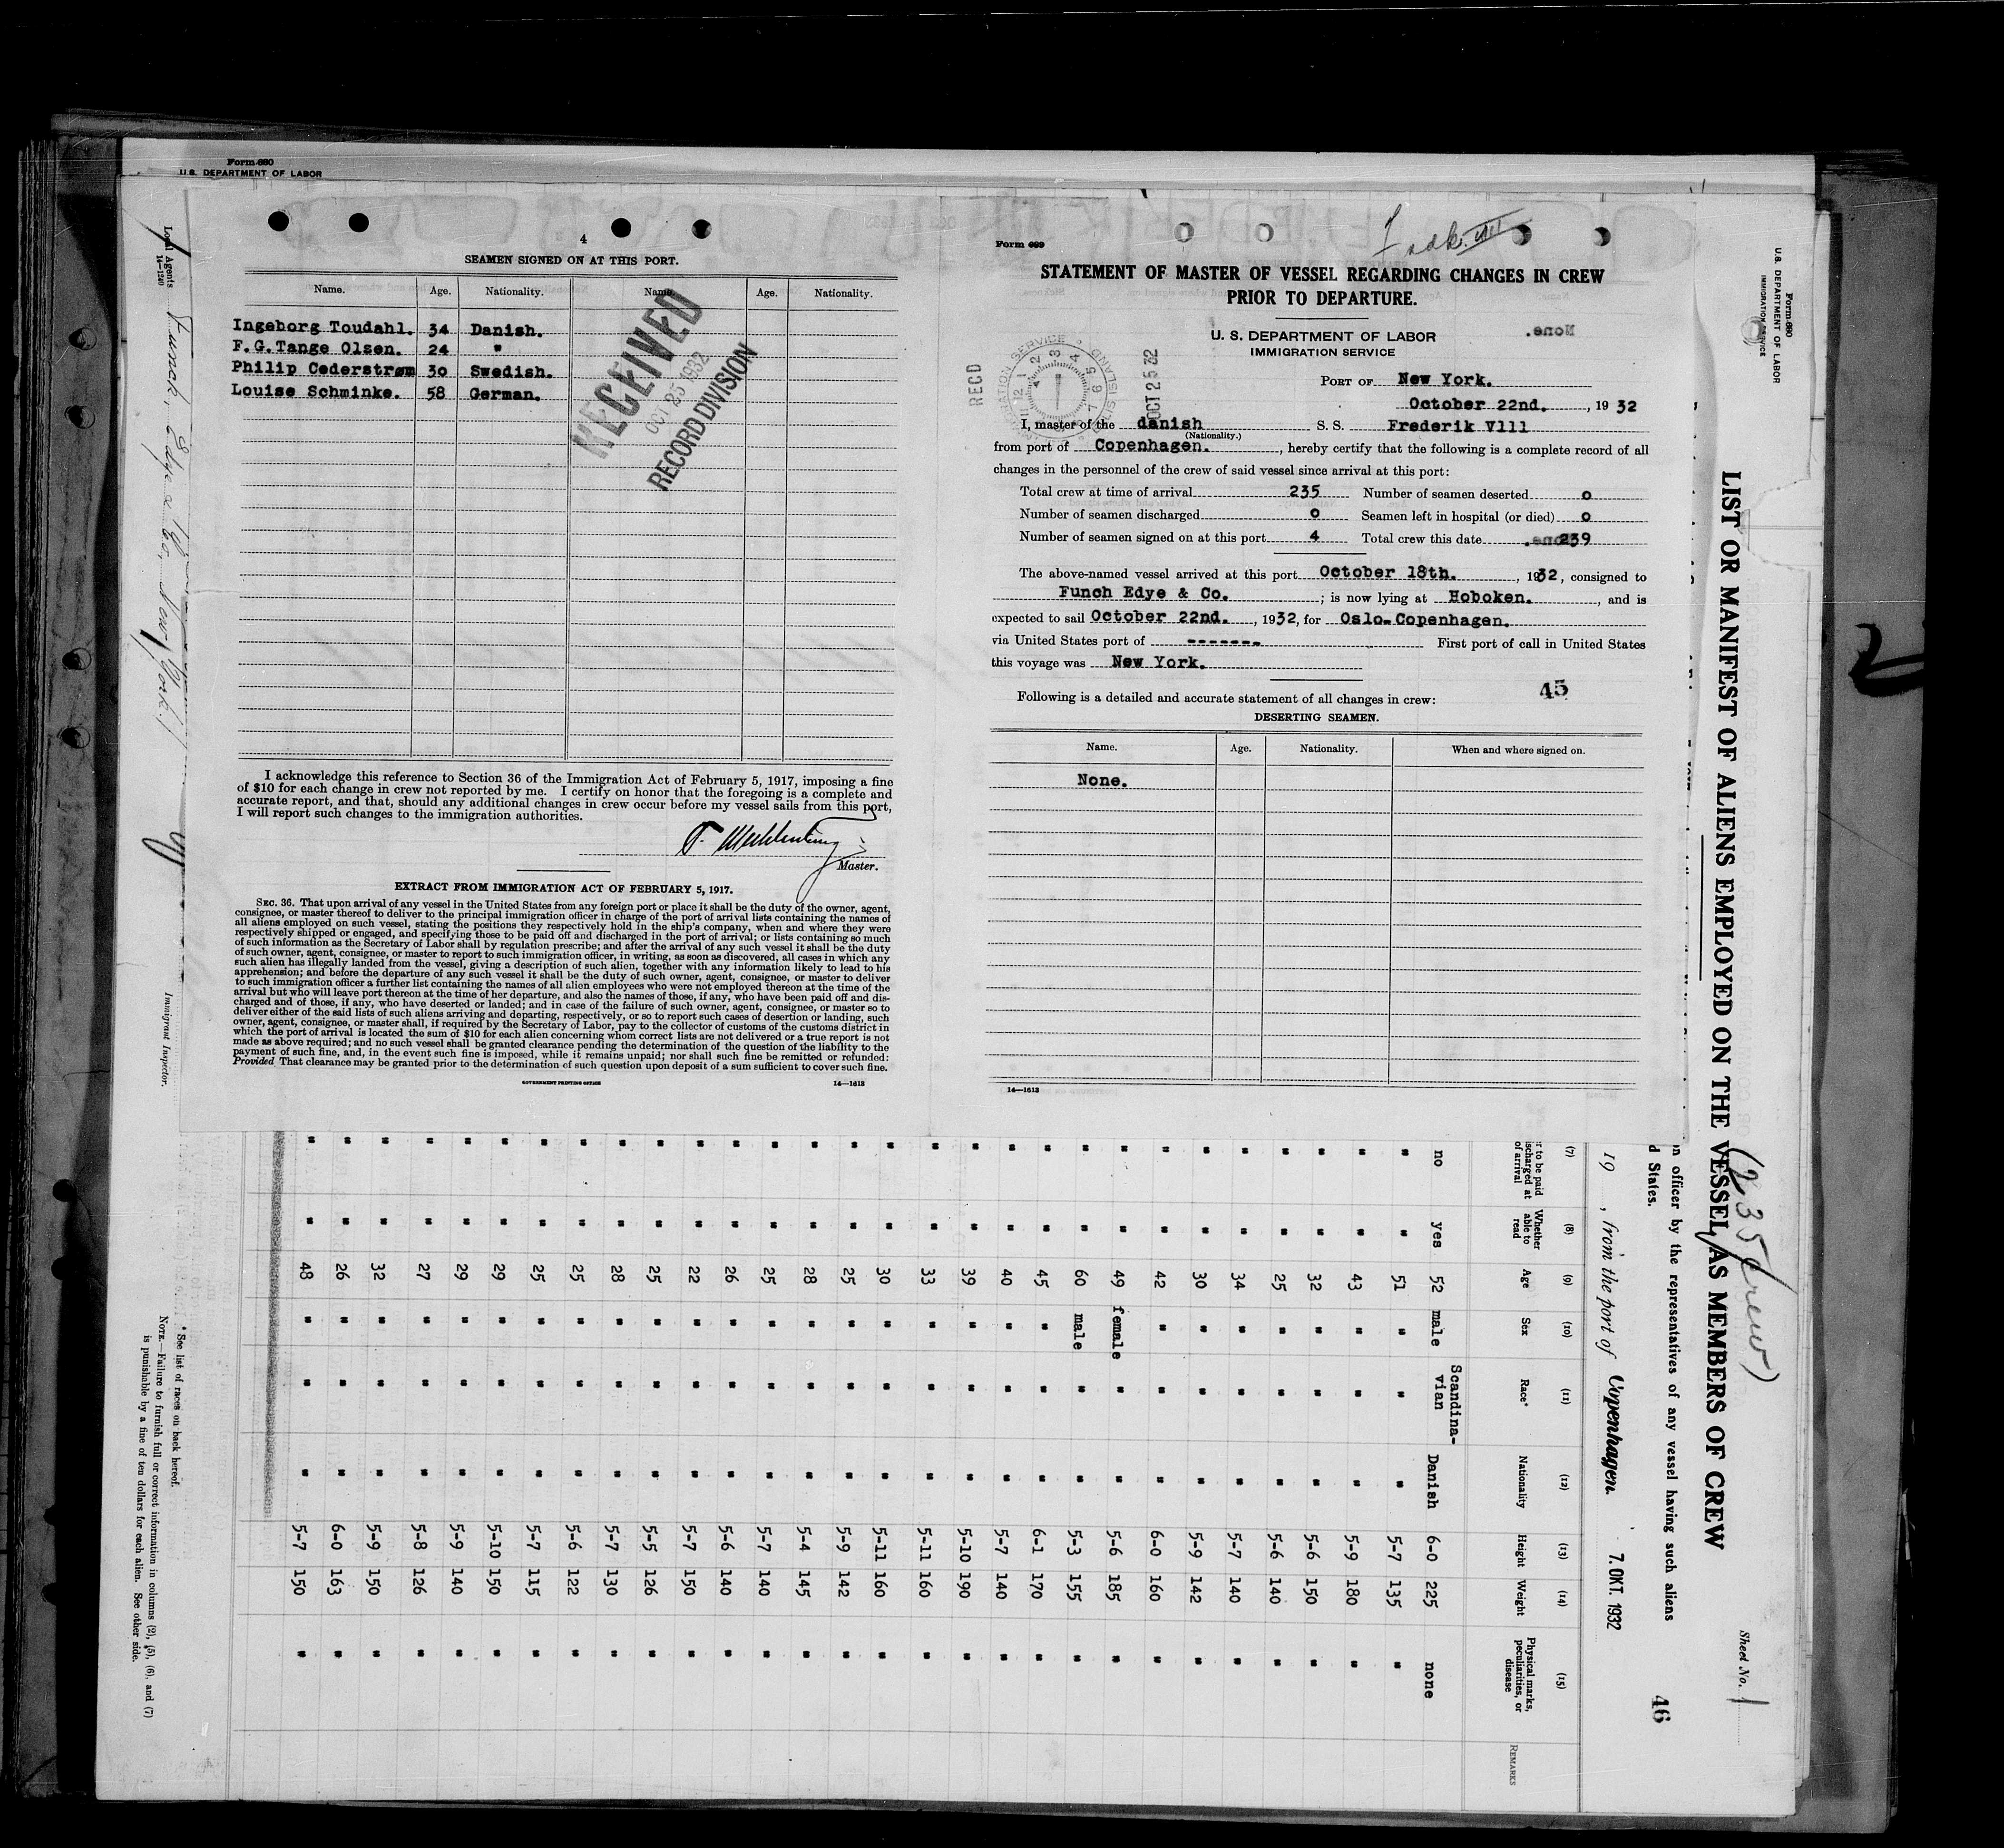 Form 680
U.S. DEPARTMENT OF LABOR
4
SEAMEN SIGNED ON AT THIS PORT.
Name. Age. Nationality. Name. Age. Nationality.
Ingeborg Toudahl. 34 Danish.
F.G.Tange Olsen. 24 "
Philip Cederstrøm 30 Swedish.
Louise Schminke. 58 German.
RECEIVED
OCT 25 1932
RECORD DIVISION
I acknowledge this reference to Section 36 of the Immigration Act of February 5, 1917, imposing a fine
of $10 for each change in crew not reported by me. I certify on honor that the foregoing is a complete and
accurate report, and that, should any additional changes in crew occur before my vessel sails from this port,
I will report such changes to the immigration authorities.
Master.
EXTRACT FROM IMMIGRATION ACT OF FEBRUARY 5, 1917.
SEC. 36. That upon arrival of any vessel in the United States from any foreign port or place it shall be the duty of the owner, agent,
consignee, or master thereof to deliver to the principal immigration officer in charge of the port of arrival lists containing the names of
all aliens employed on such vessel, stating the positions they respectively hold in the ship's company, when and where they were
respectively shipped or engaged, and specifying those to be paid off and discharged in the port of arrival; or lists containing so much
of such information as the Secretary of Labor shall by regulation prescribe; and after the arrival of any such vessel it shall be the duty
of such owner, agent, consignee, or master to report to such immigration officer, in writing, as soon as discovered, all cases in which any
such alien has illegally landed from the vessel, giving a description of such alien, together with any information likely to lead to his
apprehension; and before the departure of any such vessel it shall be the duty of such owner, agent, consignee, or master to deliver
to such immigration officer a further list containing the names of all alien employees who were not employed thereon at the time of the
arrival but who will leave port thereon at the time of her departure, and also the names of those, if any, who have been paid off and dis-
charged and of those, if any, who have deserted or landed; and in case of the failure of such owner, agent, consignee, or master so to
deliver either of the said lists of such aliens arriving and departing, respectively, or so to report such cases of desertion or landing, such
owner, agent, consignee, or master shall, if required by the Secretary of Labor, pay to the collector of customs of the customs district in
which the port of arrival is located the sum of $10 for each alien concerning whom correct lists are not delivered or a true report is not
made as above required; and no such vessel shall be granted clearance pending the determination of the question of the liability to the
payment of such fine, and, in the event such fine is imposed, while it remains unpaid; nor shall such fine be remitted or refunded:
Provided That clearance may be granted prior to the determination of such question upon deposit of a sum sufficient to cover such fine.
GOVERNMENT PRINTING OFFICE 14—1613
Form 689
STATEMENT OF MASTER OF VESSEL REGARDING CHANGES IN CREW
PRIOR TO DEPARTURE.
U. S. DEPARTMENT OF LABOR
IMMIGRATION SERVICE
RECD
IMMIGRATION SERVICE
ELLIS ISLAND
OCT 25 32
PORT OF New York.
October 22nd. , 1932
I, master of the danish S. S. Frederik Vlll
(Nationality.)
from port of Copenhagen. , hereby certify that the following is a complete record of all
changes in the personnel of the crew of said vessel since arrival at this port:
Total crew at time of arrival 235 Number of seamen deserted o
Number of seamen discharged o Seamen left in hospital (or died) o
Number of seamen signed on at this port 4 Total crew this date 239
The above-named vessel arrived at this port October 18th. , 1932, consigned to
Funch Edye & Co. ; is now lying at Hoboken. , and is
expected to sail October 22nd. , 1932, for Oslo-Copenhagen.
via United States port of ------- First port of call in United States
this voyage was New York.
45
Following is a detailed and accurate statement of all changes in crew:
DESERTING SEAMEN.
Name. Age. Nationality. When and where signed on.
None.
14—1613
Form 680
U.S. DEPARTMENT OF LABOR
IMMIGRATION SERVICE
LIST OR MANIFEST OF ALIENS EMPLOYED ON THE VESSEL AS MEMBERS OF CREW
(235 crew)
Sheet No. 1
46
on officer by the representatives of any vessel having such aliens
d States.
19 , from the port of Copenhagen. 7. OKT. 1932
(7) (8) (9) (10) (11) (12) (13) (14) (15)
r to be paid
ischarged at
of arrival
Whether
able to
read
Age Sex Race* Nationality Height Weight
Physical marks,
peculiarities, or
disease
REMARKS
no yes 52 male Scandina-
vian Danish 6-0 225 none
" " 51 " " " 5-7 135 "
" " 43 " " " 5-9 180 "
" " 32 " " " 5-6 150 "
" " 25 " " " 5-6 140 "
" " 34 " " " 5-7 140 "
" " 30 " " " 5-9 142 "
" " 42 " " " 6-0 160 "
" " 49 female " " 5-6 185 "
" " 60 male " " 5-3 155 "
" " 45 " " " 6-1 170 "
" " 40 " " " 5-7 140 "
" " 39 " " " 5-10 190 "
" " 33 " " " 5-11 160 "
" " 30 " " " 5-11 160 "
" " 25 " " " 5-9 142 "
" " 28 " " " 5-4 145 "
" " 25 " " " 5-7 140 "
" " 26 " " " 5-6 140 "
" " 22 " " " 5-7 150 "
" " 25 " " " 5-5 126 "
" " 28 " " " 5-7 130 "
" " 25 " " " 5-6 122 "
" " 25 " " " 5-7 115 "
" " 29 " " " 5-10 150 "
" " 29 " " " 5-9 140 "
" " 27 " " " 5-8 126 "
" " 32 " " " 5-9 150 "
" " 26 " " " 6-0 163 "
" " 48 " " " 5-7 150 "
* See list of races on back hereof.
NOTE.—Failure to furnish full or correct information in columns (2), (5), (6), and (7)
is punishable by a fine of ten dollars for each alien. See other side.
Local Agents Funch, Edye & Co., New York.
14—1240
Immigrant Inspector.